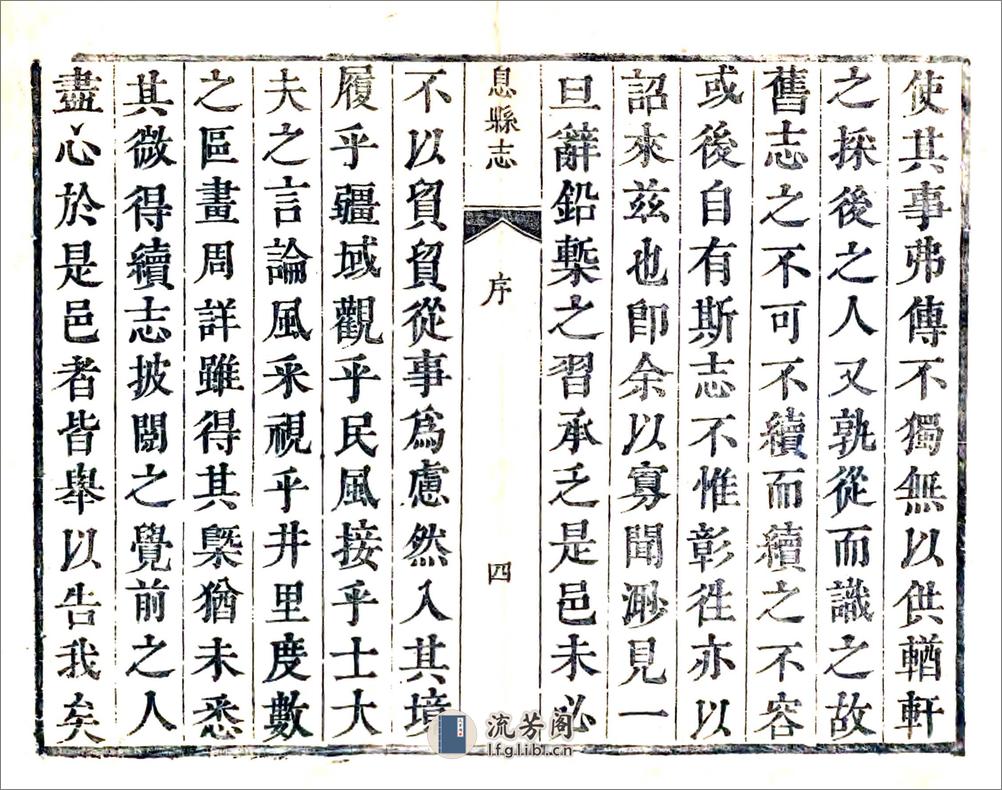 使其事弗傳不獨無以供輶軒
之採後之人又孰從而識之故
舊志之不可不續而續之不容
或後自有斯志不惟彰徃亦以
詔來兹也卽余以寡聞渺見一
旦辭鉛槧之習承乏是邑未必
息縣志
序
四
不以貿貿從事爲慮然入其境
履乎疆域觀乎民風接乎士大
夫之言論風采視乎井里度數
之區畫周詳雖得其槩猶未悉
其微得續志披閲之覺前之人
盡心於是邑者皆舉以告我矣
流芳阁
lfglibl.cn